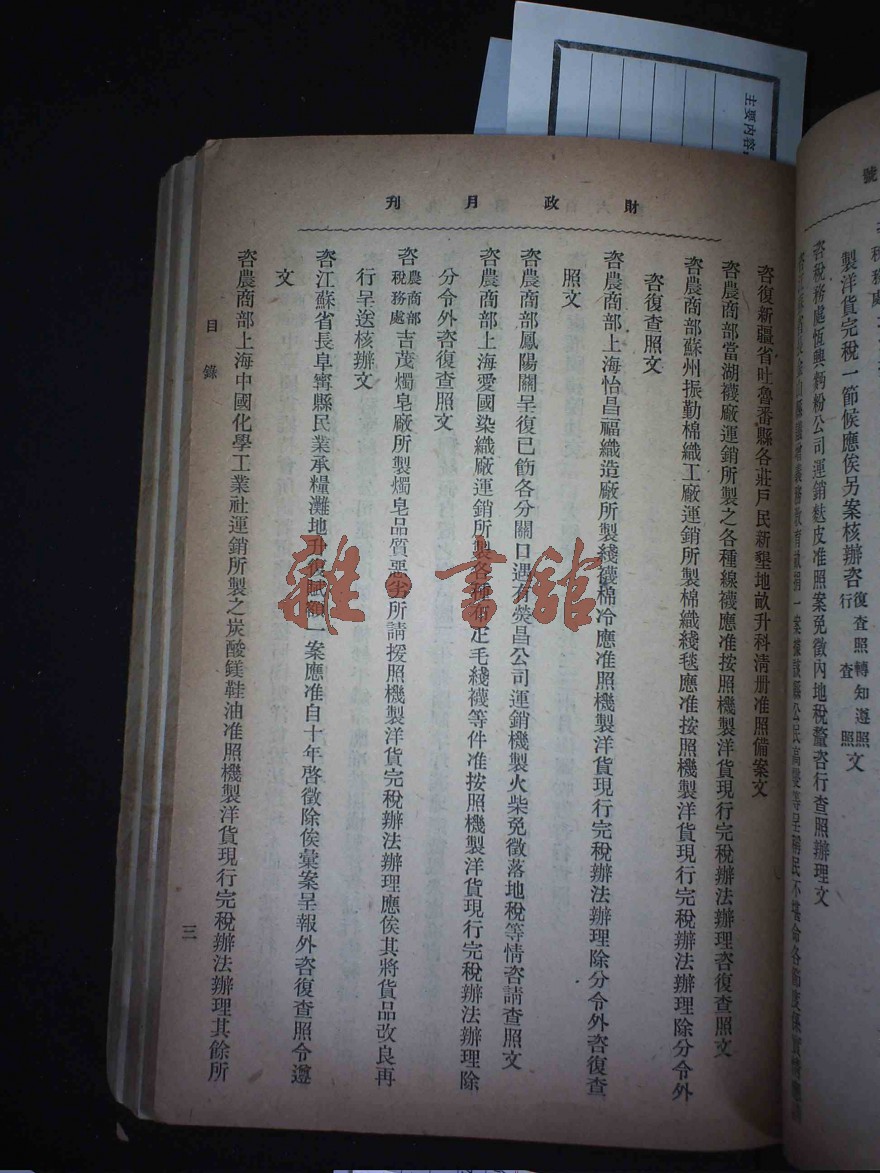 主要內容
號
製洋貨完稅一節候應俟另案核辦咨復查照轉知遵照行查照文
咨稅務處恆興鈣粉公司運銷麩皮准照案免徵內地稅釐咨行查照辦理文
財政月刊
咨復新疆省吐魯番縣各莊戶民新墾地畝升科清冊准照備案文
咨農商部當湖襪廠運銷所製之各種線襪應准按照機製洋貨現行完稅辦法辦理咨復查照文
咨農商部蘇州振勤棉織工廠運銷所製棉織綫毯應准按照機製洋貨現行完稅辦法辦理除分令外
咨復查照文
咨農商部上海怡昌福織造廠所製綫襪棉冷應准照機製洋貨現行完稅辦法辦理除分令外咨復查
照文
咨農商部鳳陽關呈復已飭各分關口遇有熒昌公司運銷機製火柴免徵落地稅等情咨請查照文
咨農商部上海愛國染織廠運銷所製各種布疋毛綫襪等件准按照機製洋貨現行完稅辦法辦理除
分令外咨復查照文
咨農商部稅務處吉茂燭皂廠所製燭皂品質惡劣所請援照機製洋貨完稅辦法辦理應俟其將貨品改良再
行呈送核辦文
咨江蘇省長阜寧縣民業承糧灘地升復賦額一案應准自十年啓徵除俟彙案呈報外咨復查照令遵
文
咨農商部上海中國化學工業社運銷所製之炭酸鎂鞋油准照機製洋貨現行完稅辦法辦理其餘所
目錄
三
雜·書館